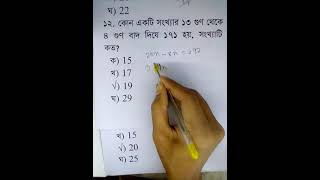 ঘ) 22
১২. কোন একটি সংখ্যার ১৩ গুণ থেকে
৪ গুণ বাদ দিয়ে ১৭১ হয়, সংখ্যাটি
কত?
ক) 15
খ) 17
√) 19
ঘ) 29
খ) 15
√) 20
ঘ) 25